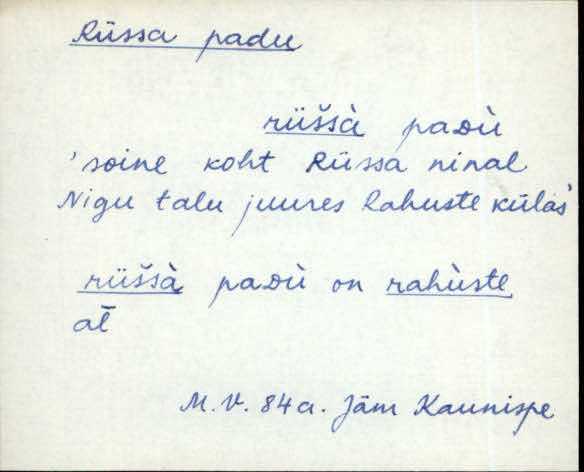 Rüssa padu
rüšsà paᴅù
'soine koht Rüssa ninal
Nigu talu juures Rahuste külas'
rüšsà paᴅù on rahùste
at̄
M.V. 84a. Jäm Kaunispe